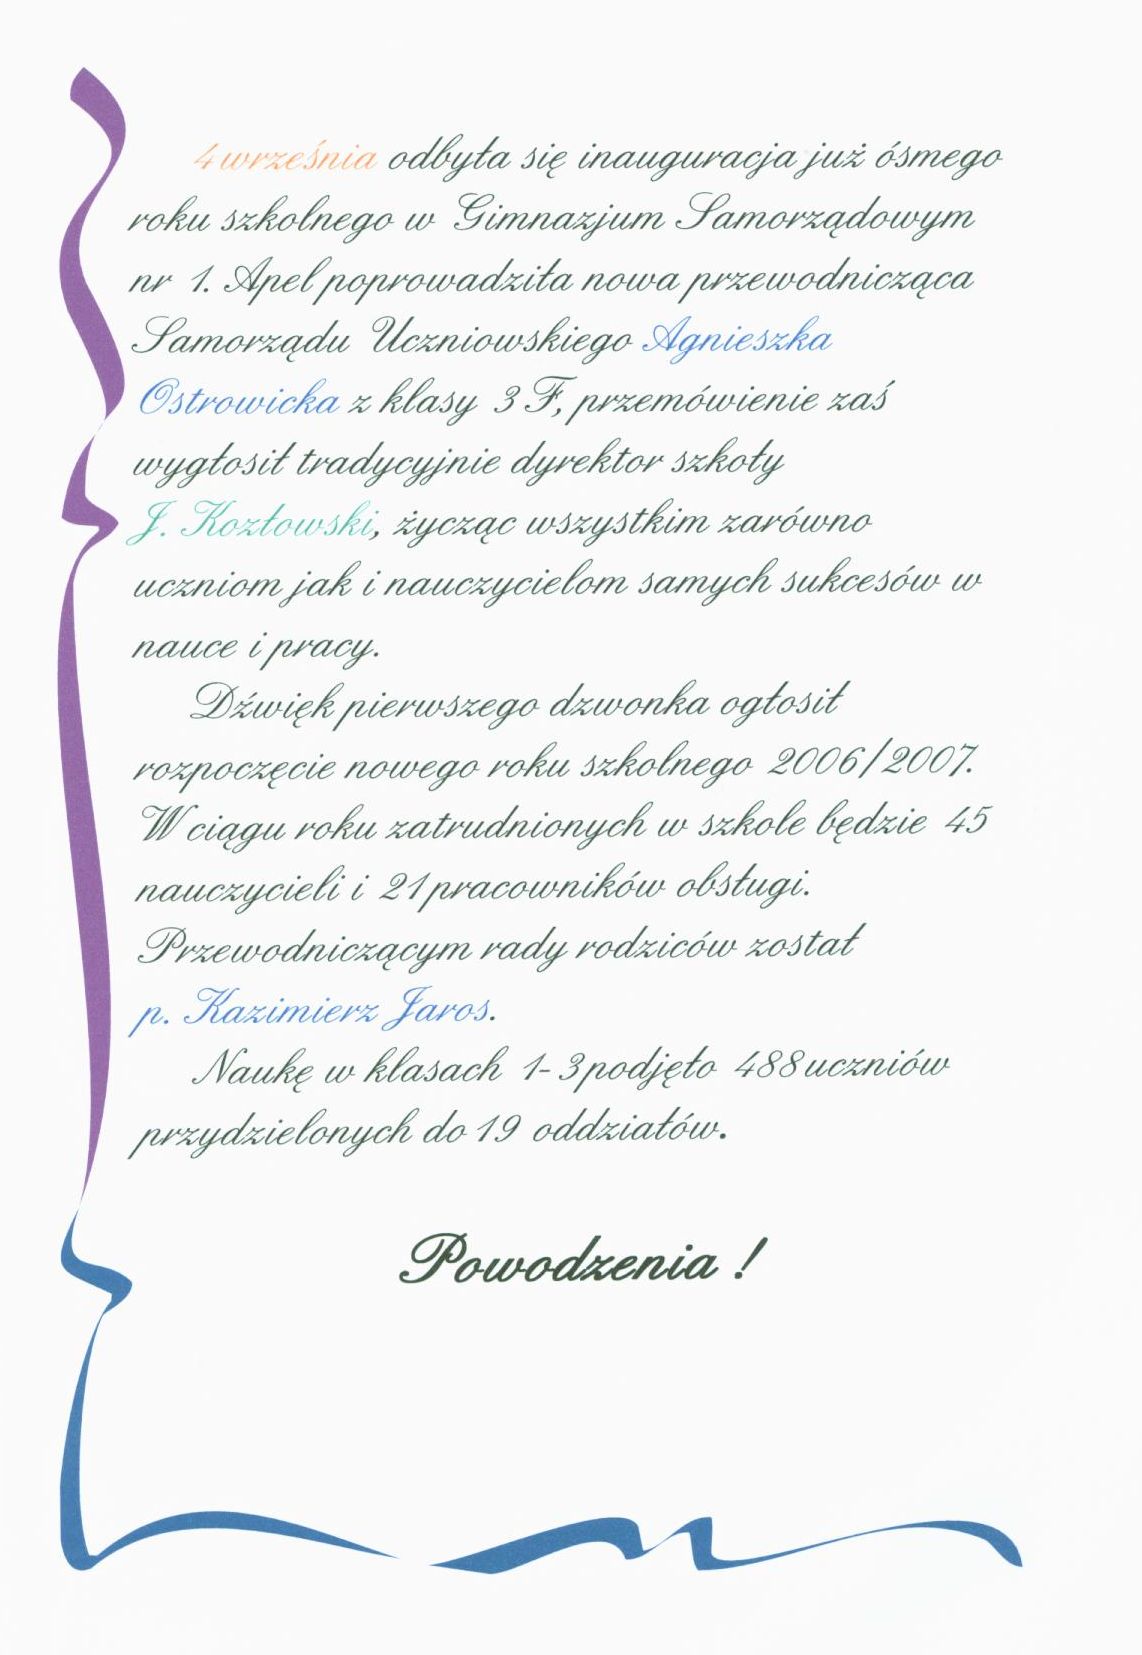 4 września odbyła się inauguracja już ósmego
roku szkolnego w Gimnazjum Samorządowym
nr 1. Apel poprowadziła nowa przewodnicząca
Samorządu Uczniowskiego Agnieszka
Ostrowicka z klasy 3 F, przemówienie zaś
wygłosił tradycyjnie dyrektor szkoły
J. Kozłowski, życząc wszystkim zarówno
uczniom jak i nauczycielom samych sukcesów w
nauce i pracy.
Dźwięk pierwszego dzwonka ogłosił
rozpoczęcie nowego roku szkolnego 2006/2007.
W ciągu roku zatrudnionych w szkole będzie 45
nauczycieli i 21 pracowników obsługi.
Przewodniczącym rady rodziców został
p. Kazimierz Jaros.
Naukę w klasach 1-3 podjęto 488 uczniów
przydzielonych do 19 oddziałów.
Powodzenia !